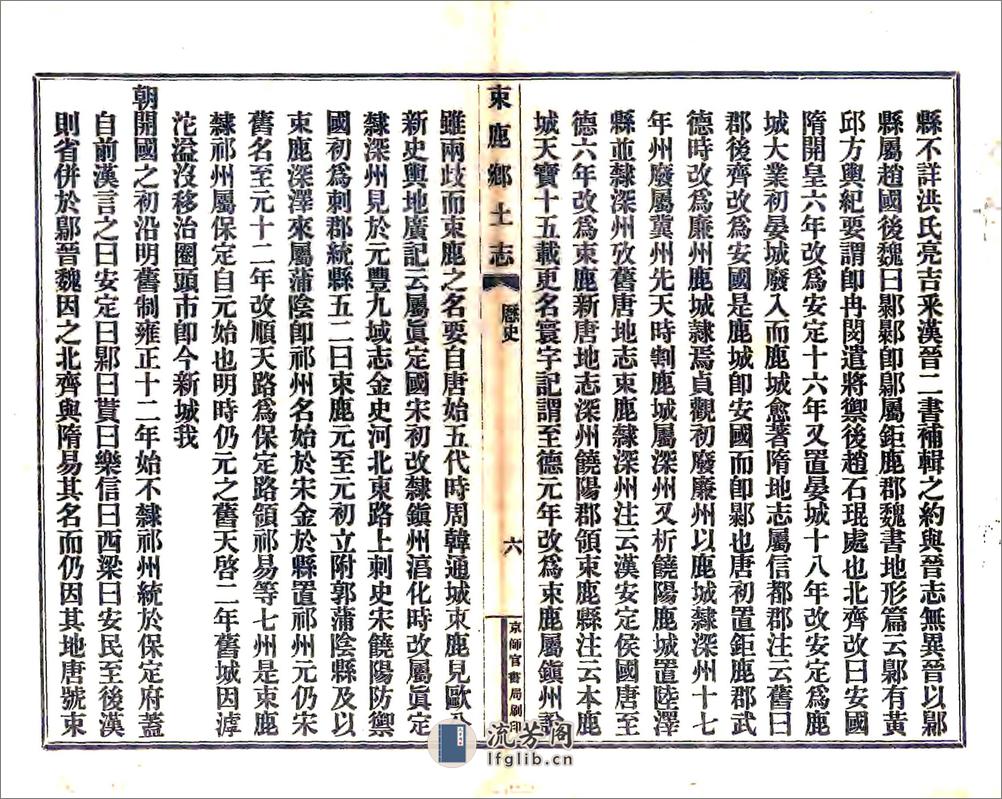 縣不詳洪氏亮吉釆漢晉二書補輯之約與晉志無異晉以鄡
縣屬趙國後魏曰鄡鄡卽鄡屬鉅鹿郡魏書地形篇云鄡有黃
邱方輿紀要謂卽冉閔遣將禦後趙石琨處也北齊改曰安國
隋開皇六年改爲安定十六年又置晏城十八年改安定爲鹿
城大業初晏城廢入而鹿城愈著隋地志屬信都郡注云舊曰
郡後齊改爲安國是鹿城卽安國而卽鄡也唐初置鉅鹿郡武
德時改爲廉州鹿城隸焉貞觀初廢廉州以鹿城隸深州十七
年州廢屬冀州先天時割鹿城屬深州又析饒陽鹿城置陸澤
縣並隸深州攷舊唐地志束鹿隸深州注云漢安定侯國唐至
德六年改爲束鹿新唐地志深州饒陽郡領束鹿縣注云本鹿
城天寶十五載更名寰宇記謂至德元年改爲束鹿屬鎭州說
束鹿鄉土志
歷史
六
京師官書局刷印
雖兩歧而束鹿之名要自唐始五代時周韓通城束鹿見歐公
新史輿地廣記云屬眞定國宋初改隸鎭州淳化時改屬眞定
隸深州見於元豐九域志金史河北東路上刺史宋饒陽防禦
國初爲刺郡統縣五二曰束鹿元至元初立附郭蒲陰縣及以
束鹿深澤來屬蒲陰卽祁州名始於宋金於縣置祁州元仍宋
舊名至元十二年改順天路爲保定路領祁易等七州是束鹿
隸祁州屬保定自元始也明時仍元之舊天啓二年舊城因滹
沱溢沒移治圈頭市卽今新城我
朝開國之初沿明舊制雍正十二年始不隸祁州統於保定府蓋
自前漢言之曰安定曰鄡曰貰曰樂信曰西梁曰安民至後漢
則省併於鄡晉魏因之北齊與隋易其名而仍因其地唐號束
流芳阁
lfglib.cn